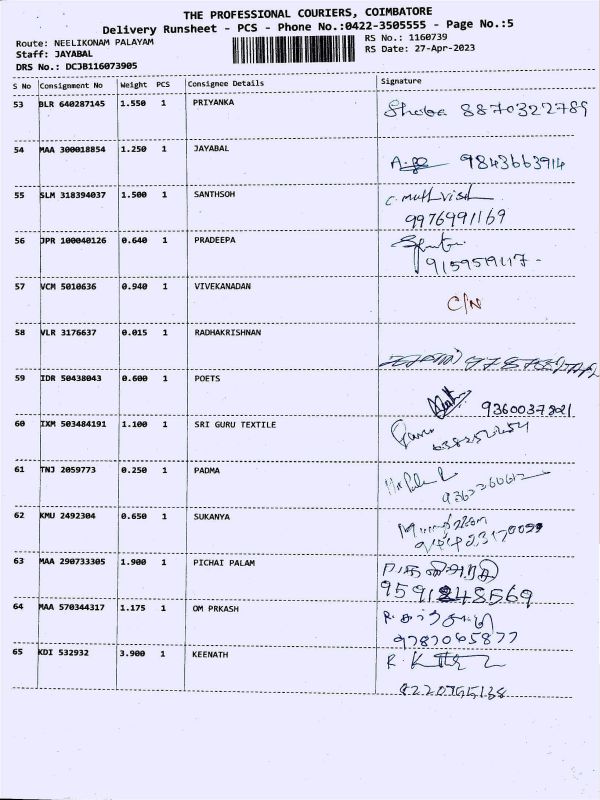 THE PROFESSIONAL COURIERS, COIMBATORE
Delivery Runsheet - PCS - Phone No.:0422-3505555 - Page No.:5
Route: NEELIKONAM PALAYAM
RS No.: 1160739
Staff: JAYABAL
RS Date: 27-Apr-2023
DRS No.: DCJB116073905
S No Consignment No Weight PCS Consignee Details Signature
53 BLR 640287145 1.550 1 PRIYANKA Shoba 8870322789
54 MAA 300018854 1.250 1 JAYABAL 9843663914
55 SLM 318394037 1.500 1 SANTHSOH
9976991169
56 JPR 100040126 0.640 1 PRADEEPA
57 VCM 5010636 0.940 1 VIVEKANADAN C/N
58 VLR 3176637 0.015 1 RADHAKRISHNAN
59 IDR 50438043 0.600 1 POETS
60 IXM 503484191 1.100 1 SRI GURU TEXTILE
61 TNJ 2059773 0.250 1 PADMA
62 KMU 2492304 0.650 1 SUKANYA
63 MAA 290733305 1.900 1 PICHAI PALAM
64 MAA 570344317 1.175 1 OM PRKASH
9787065877
65 KDI 532932 3.900 1 KEENATH
8220765138